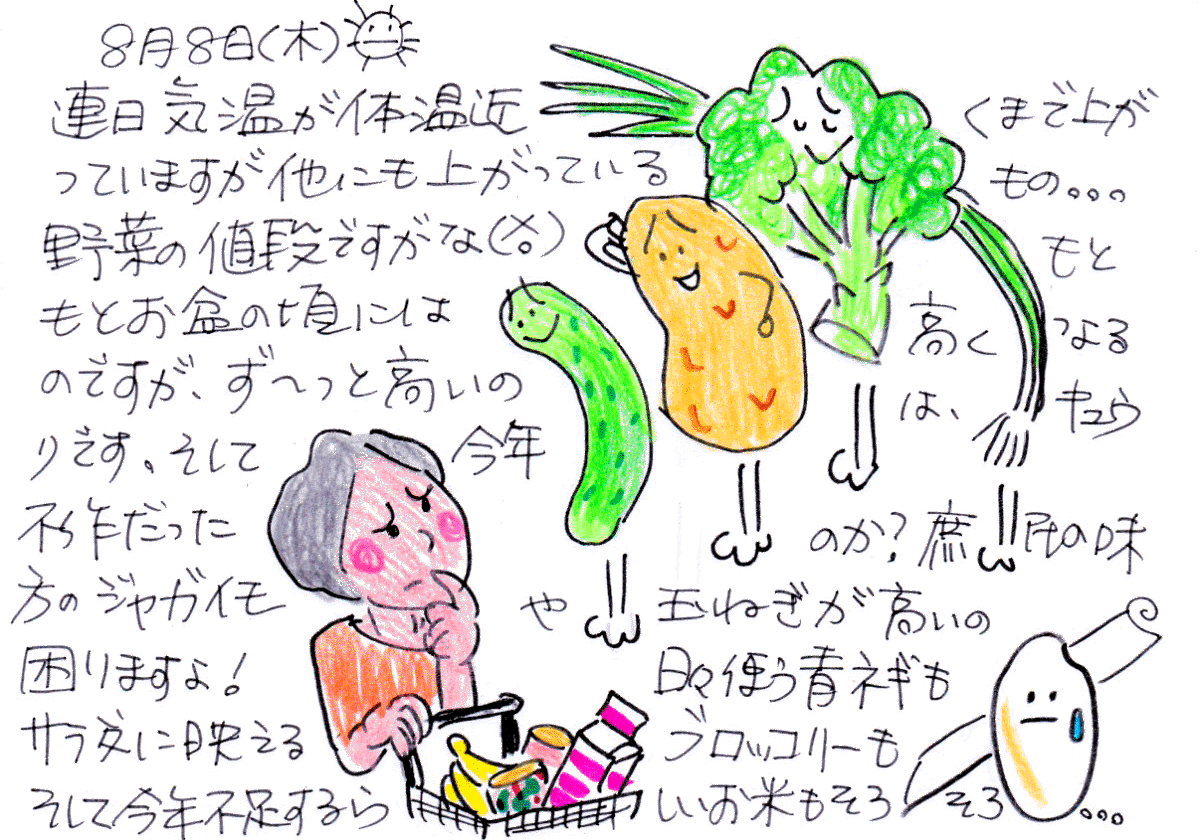 8月8日(木)
連日気温が体温近くまで上が
っていますが他にも上がっているもの。。。
野菜の値段ですがな(>。<) もと
もとお盆の頃には高くなる
のですが、ず〜っと高いのは、キュウ
リです。そして今年
不作だったのか?庶民の味
方のジャガイモや玉ねぎが高いの
困りますよ!日々使う青ネギも
サラダに映えるブロッコリーも
そして今年不足するらしいお米もそろそろ...